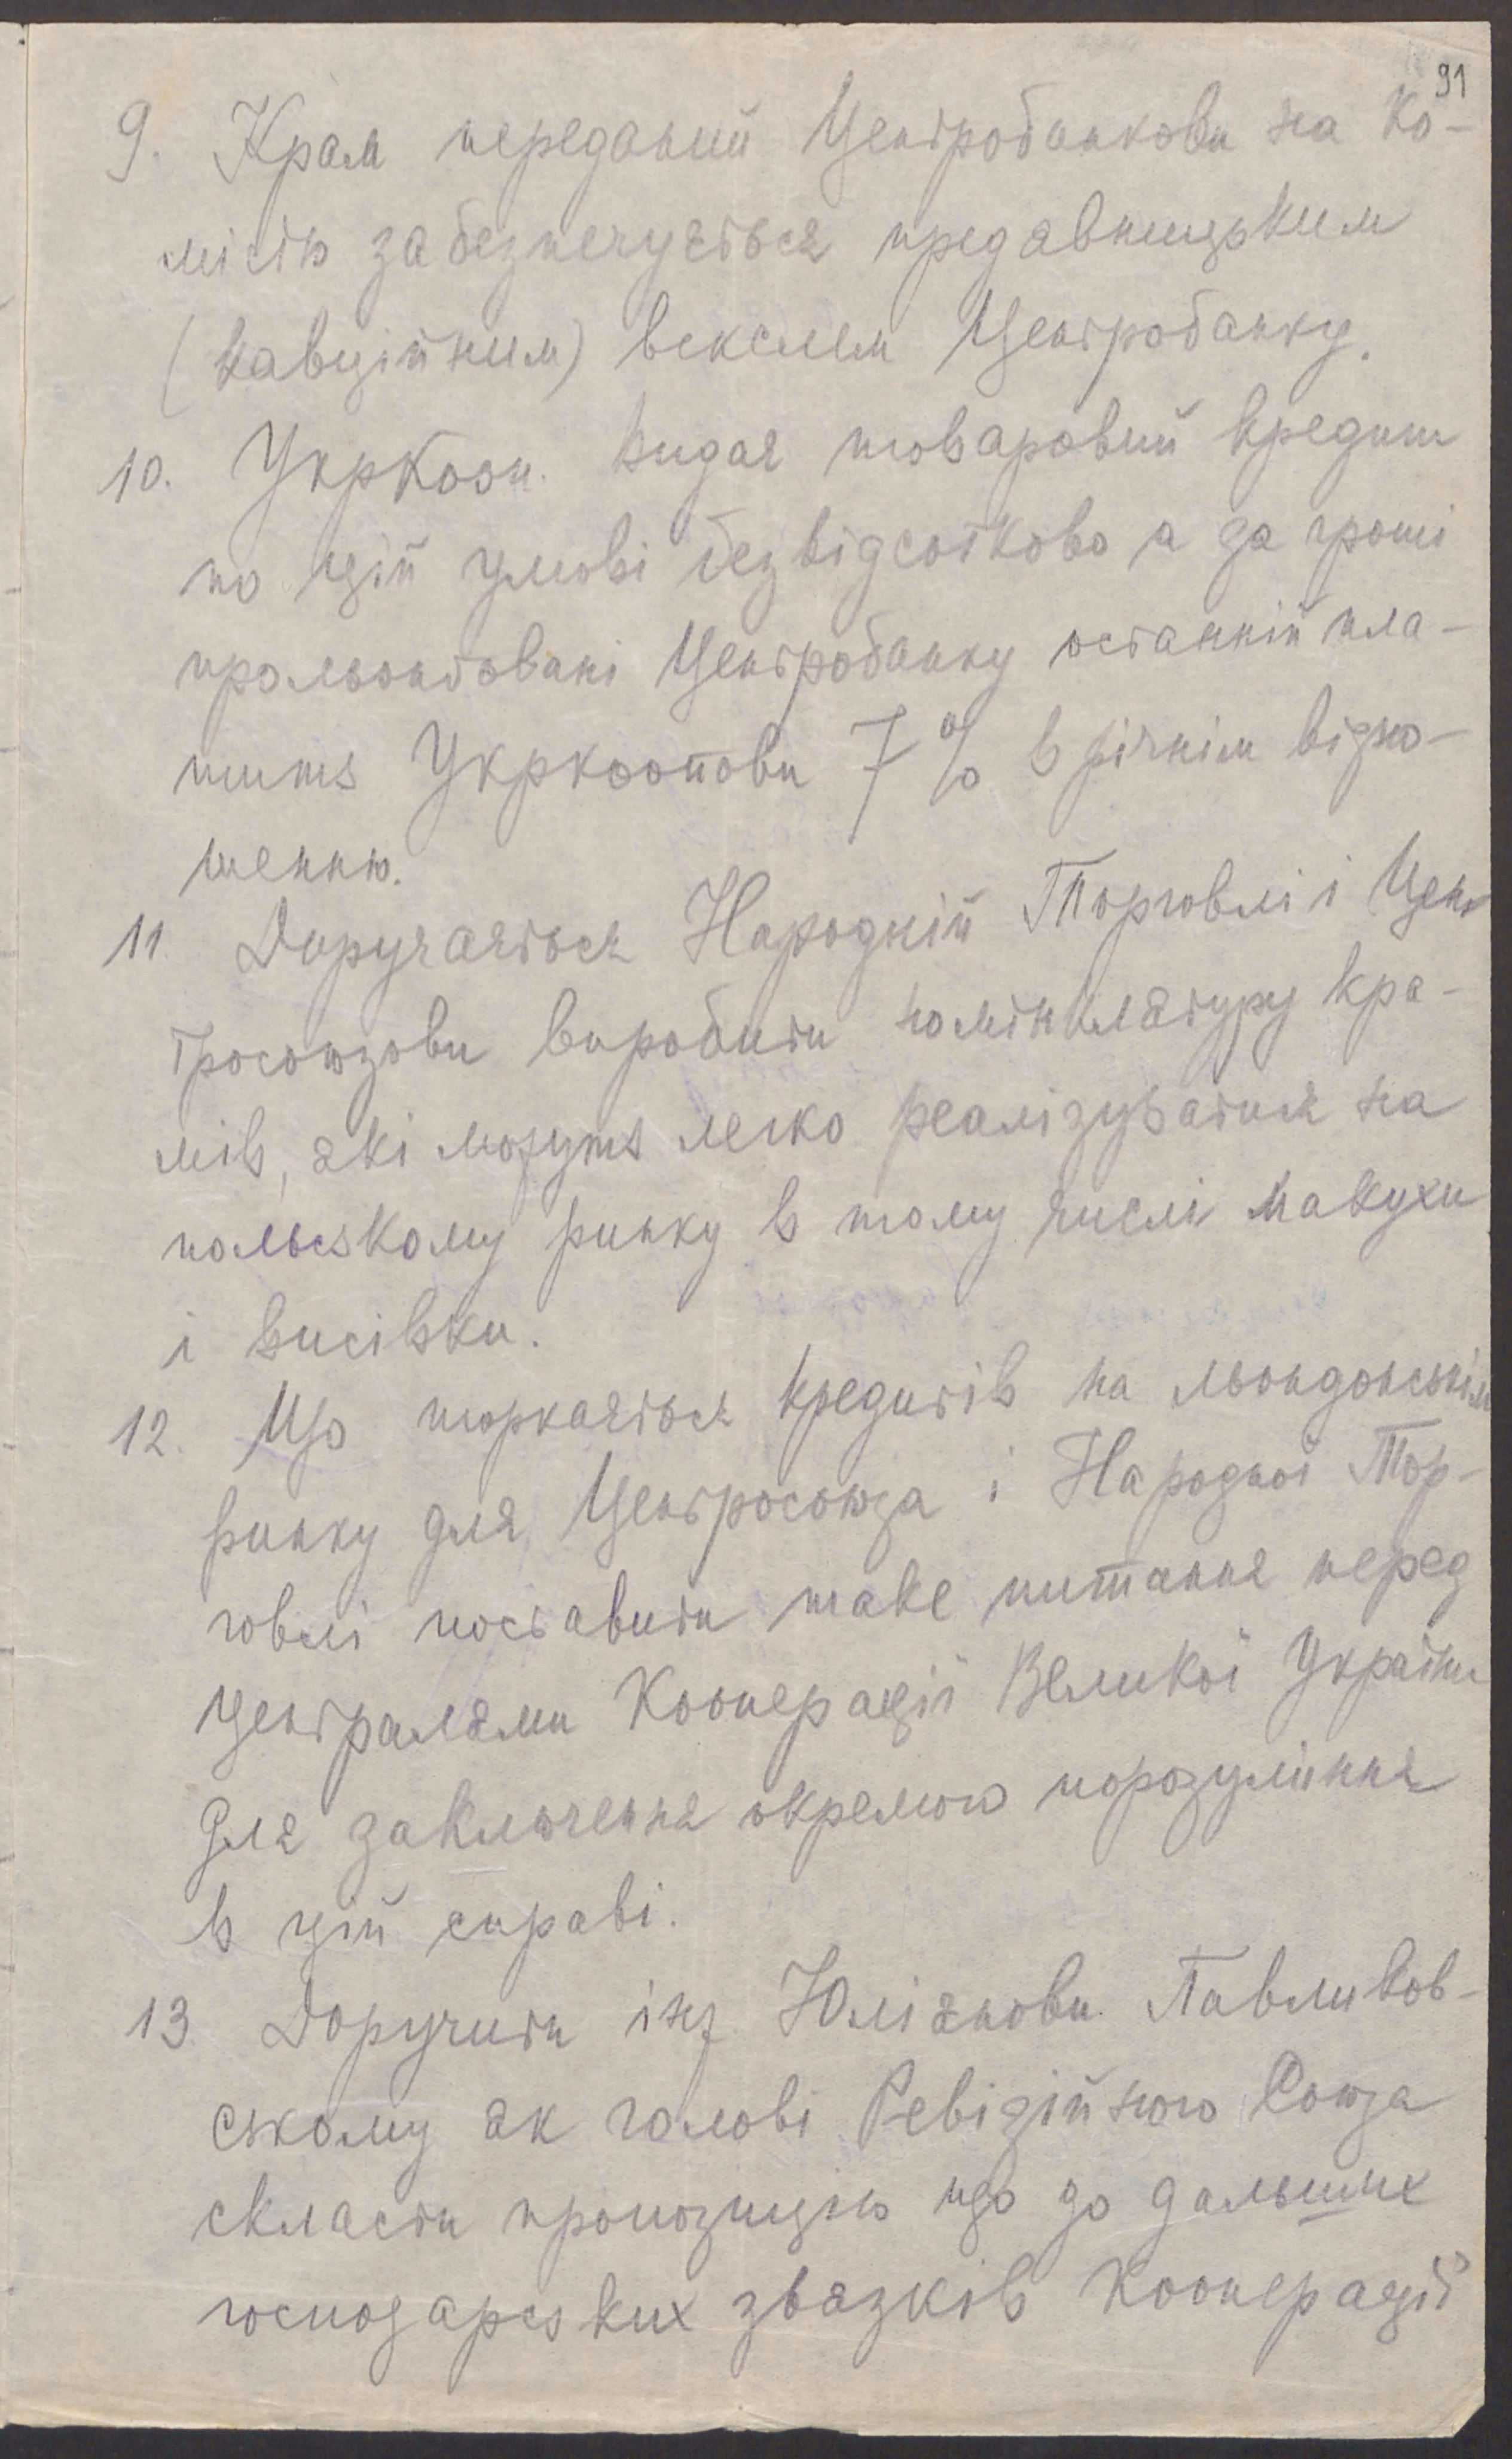 91
9. Крам переданий Центробанкови на ко-
місію забезпечуєтьсь предавницьким
(кавційним) векслем Центробанку.
10. УкрКооп. видає товаровий кредит
по цій умові безвідсотково а за гроші
прольонґовані Центробанку останній пла-
тить Укркоопови 7% в річнім відно-
шенню.
11. Доручаєтьсь Народній Торговлі і Цен-
тросоюзови виробити номінклятуру кра-
мів, які можуть легко реалізуватися на
польському ринку в тому числі макухи
і висівки.
12. Що торкаєтьсь кредитів на льондонськім
ринку для Центросоюза і Народної Тор-
говлі поставити таке питання перед
централями Кооперації Великої України
для заключення окремого порозуміння
в цій справі.
13. Доручити інж Юліянови Павликов-
ському як голові Ревізійного Союза
скласти пропозицію що до дальших
господарських звязків Кооперації